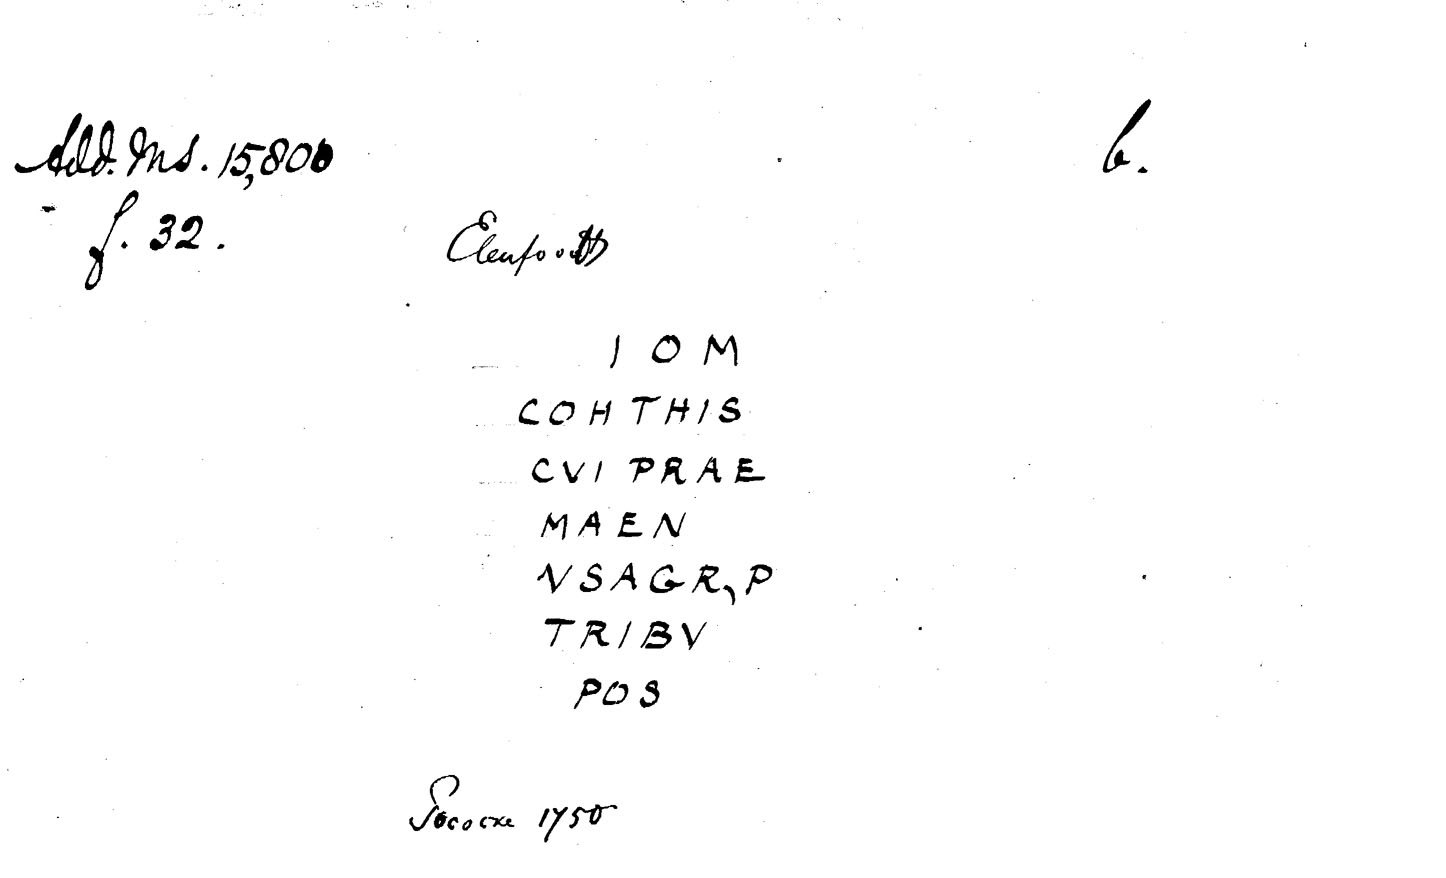 Add. MS. 15,800
b.
f. 32.
I O M
COH THIS
CVI PRAE
MAEN
NSAGR,P
TRIBV
POS
Pococke 1750